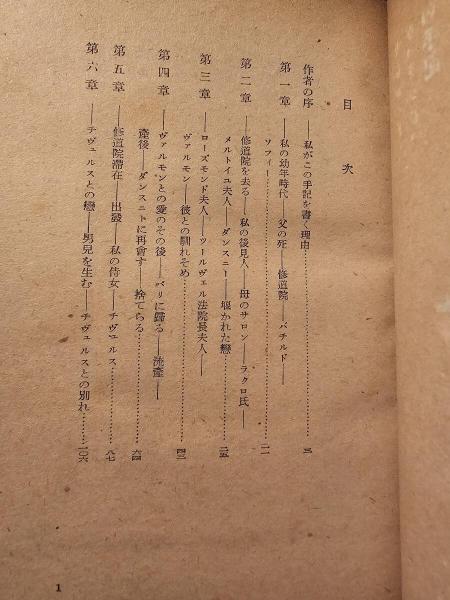 目次
作者の序――私がこの手記を書く理由…………三
第一章――私の幼年時代――父の死――修道院――バチルド――
ソフィー…………二一
第二章――修道院を去る――私の後見人――母のサロン――ラクロ氏――
メルトイユ夫人――ダンスニー――堰かれた戀…………二五
第三章――ローズモンド夫人――ツールヴェル法院長夫人――
ヴァルモン――彼との馴れそめ…………四三
第四章――ヴァルモンとの愛のその後――パリに歸る――流產――
產後――ダンスニトに再會す――捨てらる…………六四
第五章――修道院滯在――出發――私の侍女――チヴェルス…………八七
第六章――チヴェルスとの戀――男兒を生む――チヴェルスとの別れ…………一〇六
1